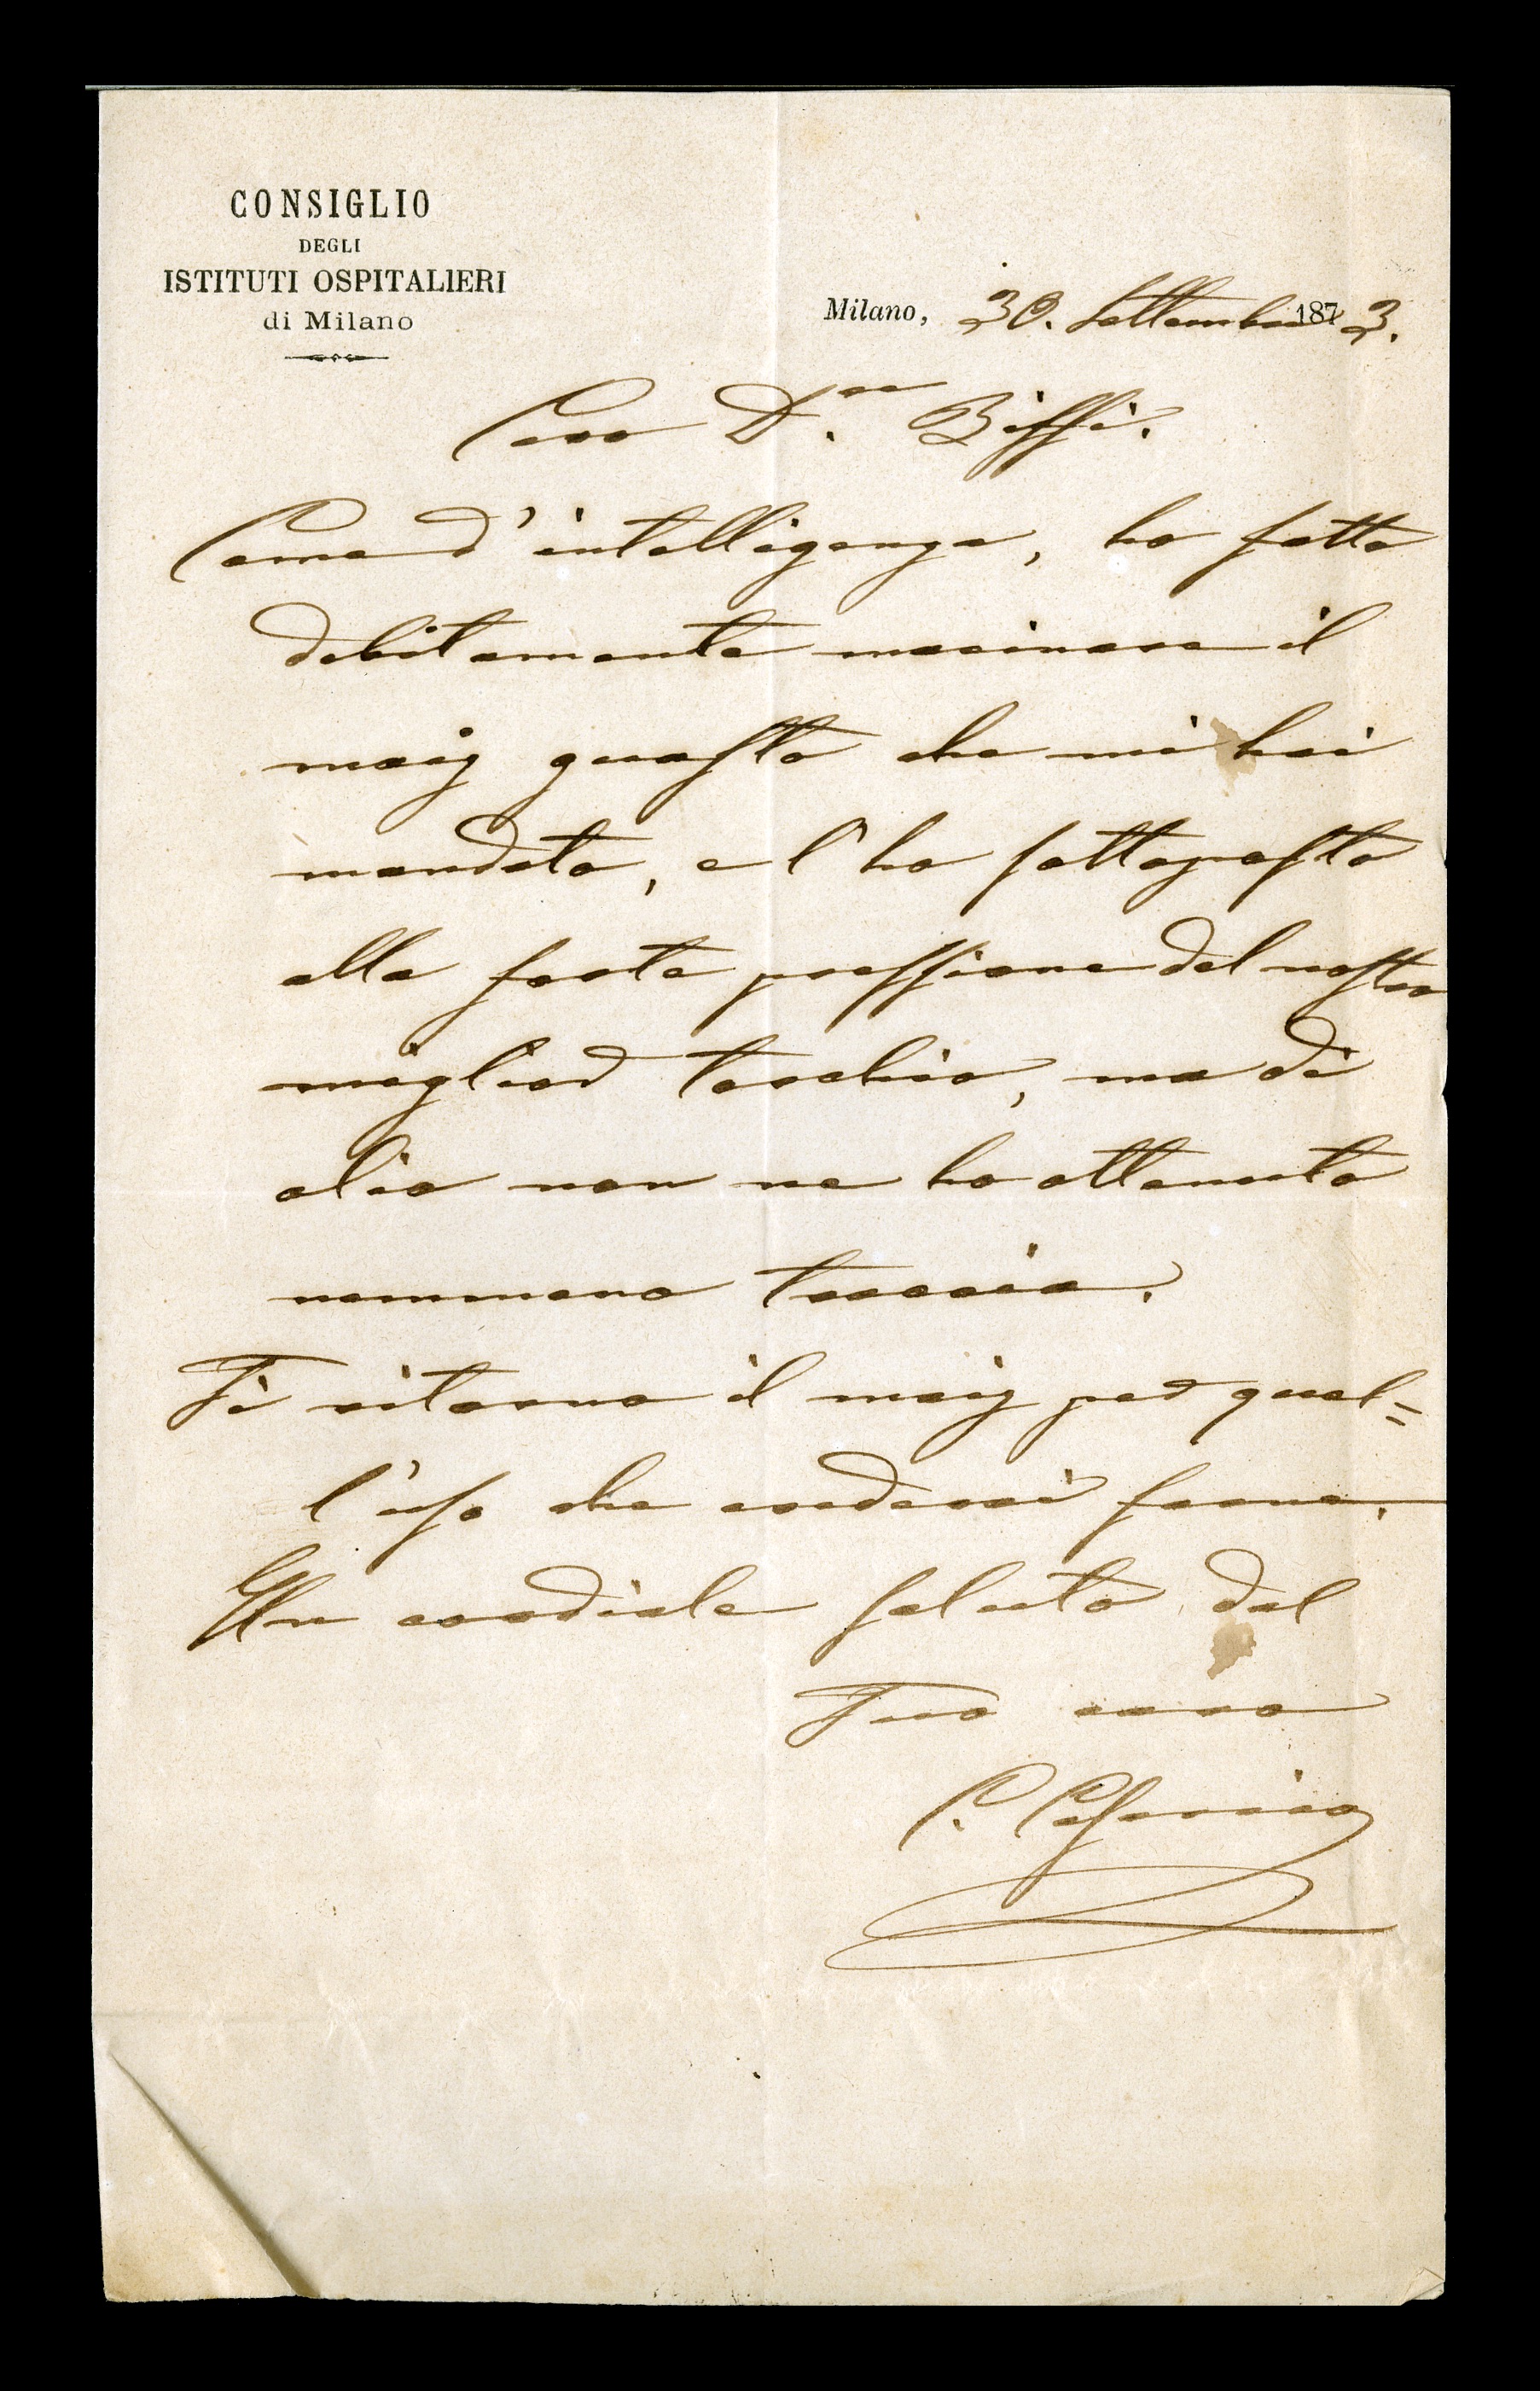 CONSIGLIO
DEGLI
ISTITUTI OSPITALIERI
di Milano
Milano, 30. Settembre 1873.
Caro D.re Biffi.
Come d'intelligenza, ho fatto
debitamente macinare il
maiz guasto che mi hai
mandato, e l'ho sottoposto
alla forte pressione del nostro
miglior torchio, ma di
olio non ne ho ottenuto
nemmeno traccia.
Ti ritorno il maiz per quel=
l'uso che crederai farne.
Un cordiale saluto dal
Tuo caro
C.